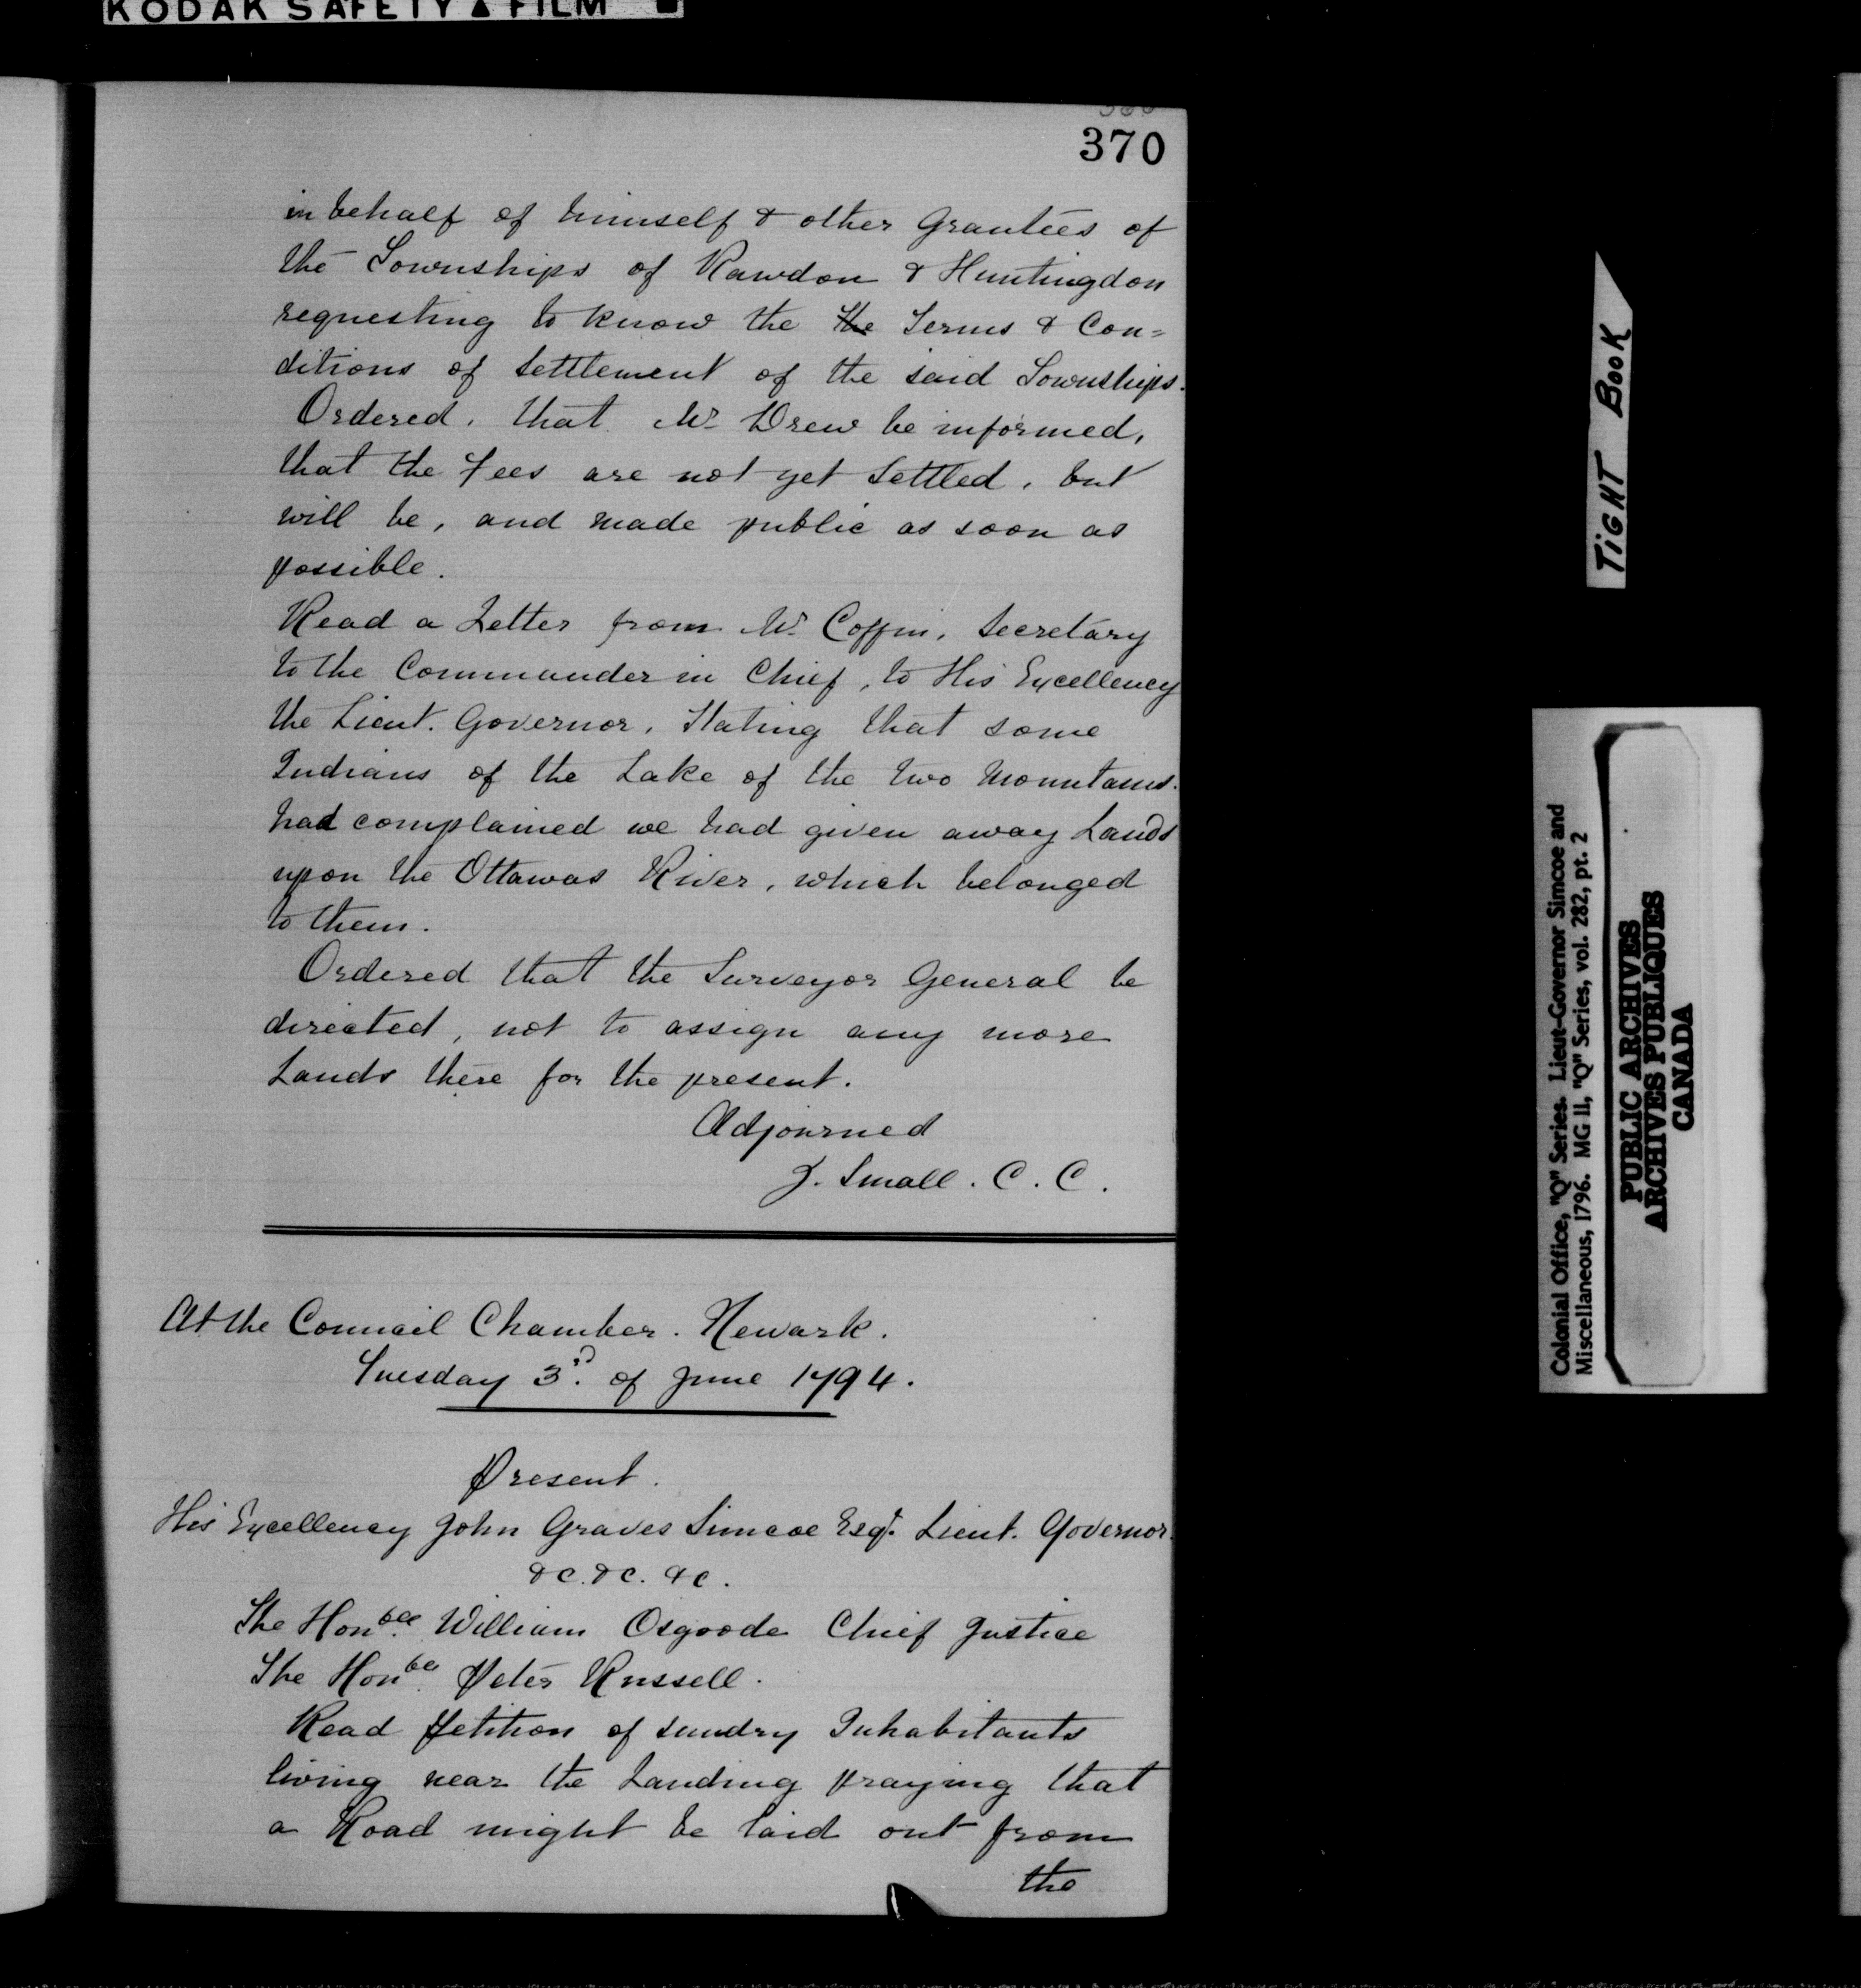 KODAK SAFETY ▲ FILM
370
in behalf of himself & other Grantees of
the Townships of Rawdon & Huntingdon
requesting to know the the Terms & Con=
ditions of Settlement of the said Townships.
Ordered, that Mr Drew be informed,
that the Fees are not yet Settled, but
will be, and made public as soon as
possible.
Read a Letter from Mr Coffin, Secretary
to the Commander in Chief, to His Excellency
the Lieut. Governor, Stating that some
Indians of the Lake of the two Mountains.
had complained we had given away Lands
upon the Ottawas River, which belonged
to them.
Ordered that the Surveyor General be
directed, not to assign any more
Lands there for the present.
Adjourned
J. Small. C. C.
At the Council Chamber. Newark.
Tuesday 3.d of June 1794.
Present.
His Excellency John Graves Simcoe Esqr. Lieut. Governor.
&c. &c. &c.
The Honble. William Osgoode Chief Justice
The Honble. Peter Russell.
Read Petition of sundry Inhabitants
living near the Landing praying that
a Road might be laid out from
the
TIGHT BOOK
Colonial Office, "Q" Series. Lieut-Governor Simcoe and
Miscellaneous, 1796. MG 11, "Q" Series, vol. 282, pt. 2
PUBLIC ARCHIVES
ARCHIVES PUBLIQUES
CANADA